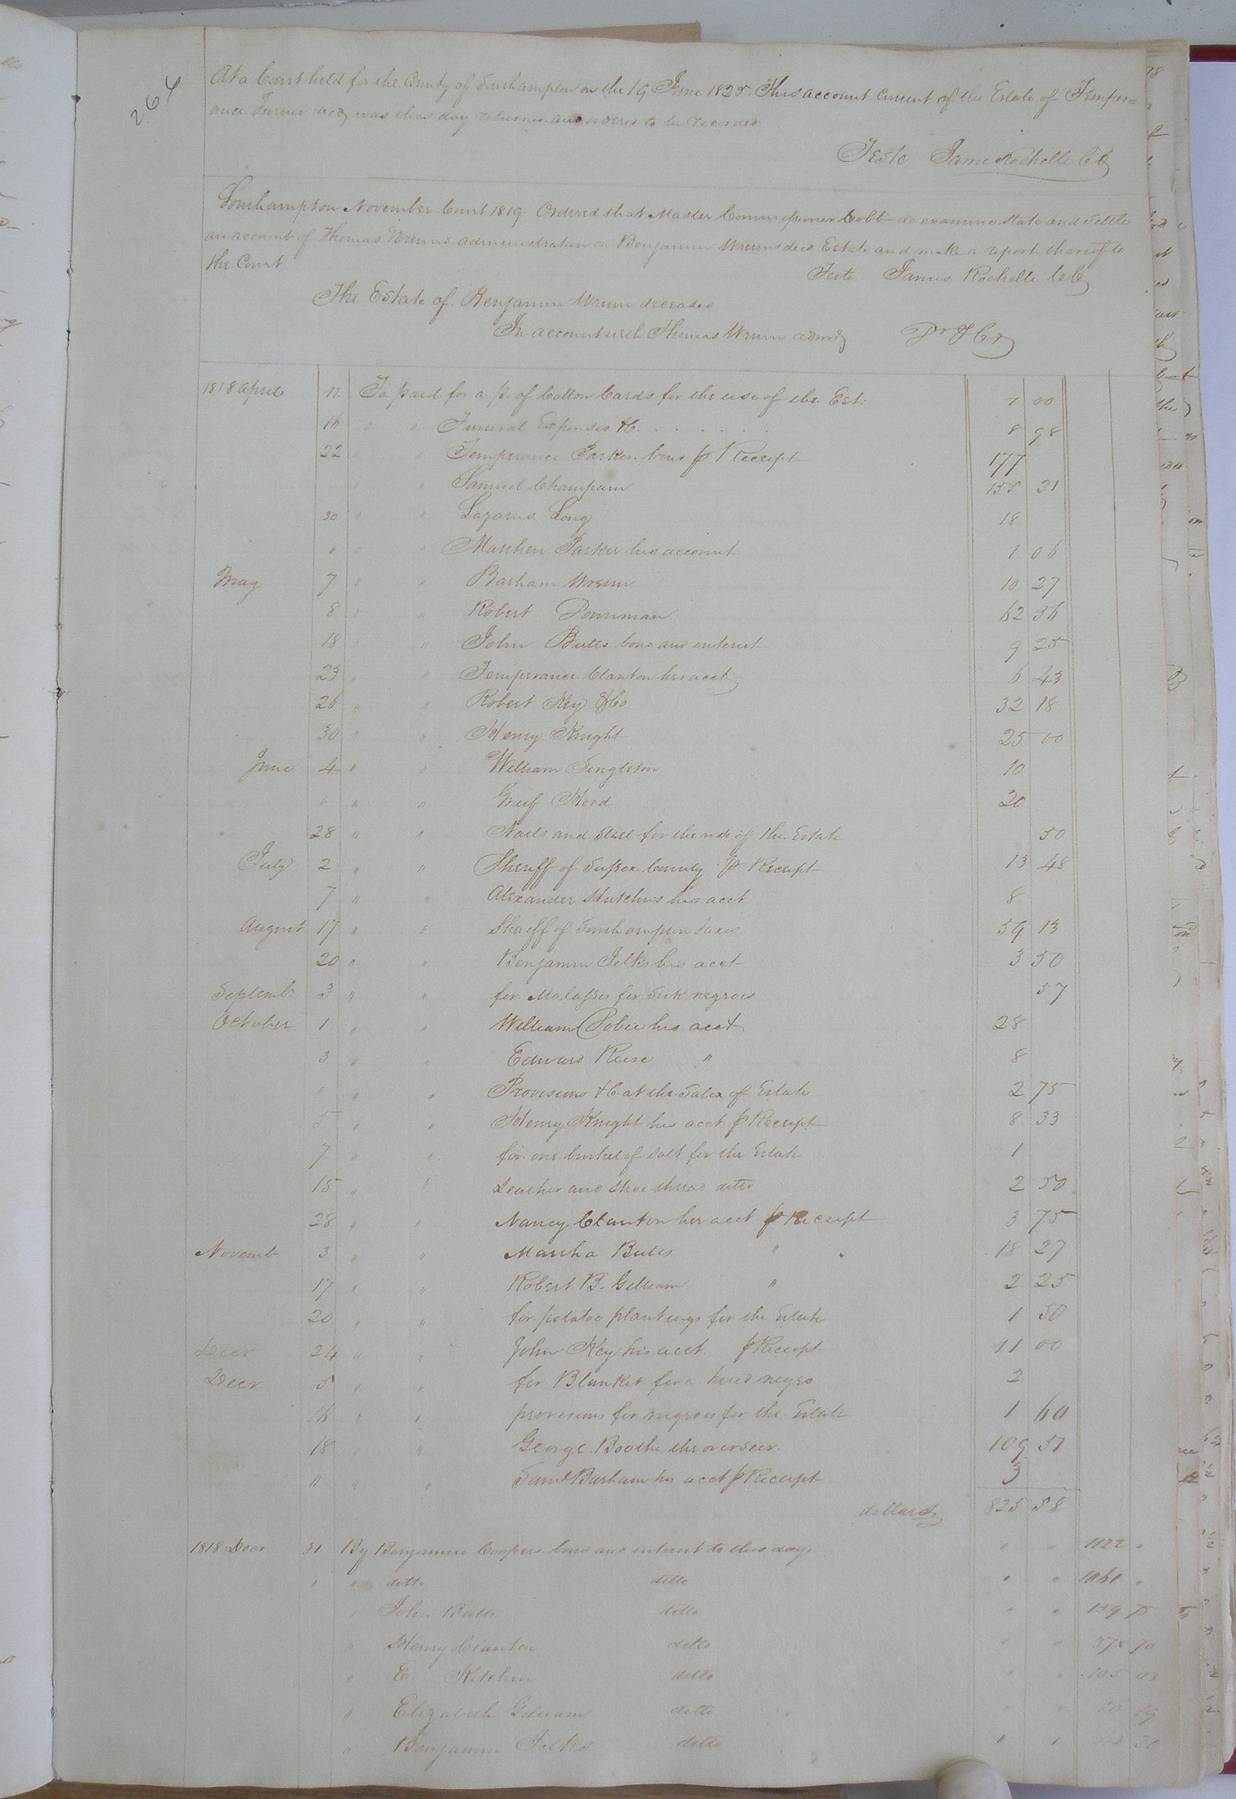 264
At a Court held for the County of Southampton on the 19 June 1825 This account Current of the Estate of Temper=
ance Turner decd was this day returned and ordered to be recorded
Teste James Rochelle CC
Southampton November Court 1819 Ordered that Master Commissioner Cobb do examine State and Settle
an account of Thomas Wrenns administration on Benjamin Wrenns decd Estate and make a report thereof to
the Court
Teste James Rochelle CC
The Estate of Benjamin Wrenn deceased
In account with Thomas Wrenn admor Dr & Cr
1818 April 11 To paid for a pr of Cotton Cards for the use of the Est: 1 00
16 " " Funeral Expenses &C 8 98
22 " " Temperance Parker bond p Receipt 177
" " Samuel Champain 155 31
30 " " Lazarus Long 18
" " " Matthew Parker his account 1 06
May 7 " " Barham Wrenn 10 27
8 " " Robert 62 56
18 " " John Butts bond and interest 9 25
23 " " Temperance Clanton her acct 6 43
26 " " Robert Key & Co 32 18
30 " " Henry Knight 25 00
June 4 " " William Singleton 10
" " " Greif Hood 20
28 " " Nails and Steel for the use of the Estate 50
July 2 " " Sheriff of Sussex County p Receipt 13 48
7 " " Alexander his acct 8
August 17 " " Sheriff of Southampton taxes 59 13
20 " " Benjamin Jelks his acct 3 50
Septemb. 3 " " for Molasses for Sick negroes 57
October 1 " " William his acct 28
3 " " Edward Reese " 8
" " " Provisions &C at the Sales of Estate 2 75
5 " " Henry Knight his acct p Receipt 8 33
7 " " for one bushel of Salt for the Estate 1
15 " " Leather and Shoe thread ditto 2 50
28 " " Nancy Clanton her acct p Receipt 3 75
Novemb 3 " " Martha Butts " 18 27
17 " " Robert B. Gilliam " 2 25
20 " " for potatoe plantings for the Estate 1 50
24 " " John Key his acct p Receipt 11 00
Decr 5 " " for Blanket for a hired negro 2
16 " " provisions for negroes for the Estate 1 60
18 " " George Booth the overseer 109 51
" " " Saml Barham his acct p Receipt 3
dollars 825 58
1818 Decr 31 By Benjamin Coopers bond and interest to this day " " 1122 "
" " ditto ditto " " 1061 "
" John Butts ditto " " 159 75
" Henry Clanton ditto " "
" E Kitchen ditto " " 105
" Elizabeth Gilliam ditto " "
" Benjamin Jelks ditto " "